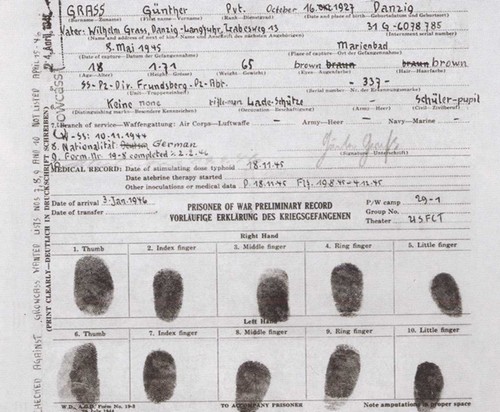 GRASS Günther Pvt. October 16. 1927 Danzig
(Surname—Zuname) (First name—Vorname) (Rank—Dienstgrad) (Date and place of birth—Geburtsdatum und Geburtsort)
Vater: Wilhelm Grass, Danzig-Langfuhr, 31G-6078785
8. Mai 1945 Marienbad
(Date of capture—Datum der Gefangennahme) (Place of capture—Ort der Gefangennahme)
18 1.71 65 brown braun braun brown
(Age—Alter) (Height—Grösse) (Weight—Gewicht) (Eyes—Augenfarbe) (Hair—Haarfarbe)
SS-Pz-Dir. Frundsberg-Pz-Abt. -337-
Keine none rifle-man Lade-Schütze Schüler-pupil
7. Branch of service—Waffengattung: Air Corps—Luftwaffe Army—Heer Navy—Marine
W-SS: 10.11.1944
8. Nationalität German
9. Form. Nr. 19-8 completed 2.2.46
(Signature—Unterschrift)
MEDICAL RECORD: Date of stimulating dose typhoid 18.11.45
Date atebrine therapy started
Other inoculations or medical data P 18.11.45 19.8.45-4.12.45
Date of arrival 3. Jan. 1946
Date of transfer
PRISONER OF WAR PRELIMINARY RECORD
VORLÄUFIGE ERKLÄRUNG DES KRIEGSGEFANGENEN
P/W camp 29-1
Group No.
Theater USFET
Right Hand
1. Thumb 2. Index finger 3. Middle finger 4. Ring finger 5. Little finger
Left Hand
6. Thumb 7. Index finger 8. Middle finger 9. Ring finger 10. Little finger
W.D., A.G.O. Form No. 19-2
TO ACCOMPANY PRISONER
Note amputations in proper space
(PRINT CLEARLY—DEUTLICH IN DRUCKSCHRIFT SCHREIBEN)
CHECKED AGAINST CROWCASS WANTED LISTS NOS 7, 8, 9 AND 10 NOT LISTED